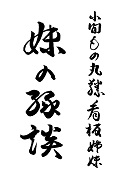 小間もの丸鐡看板姉妹
妹の縁談